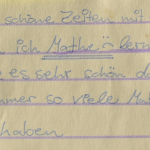 schöne Zeiten mit
ich Mathe
es sehr schön d
mmer so viele Ma
haben